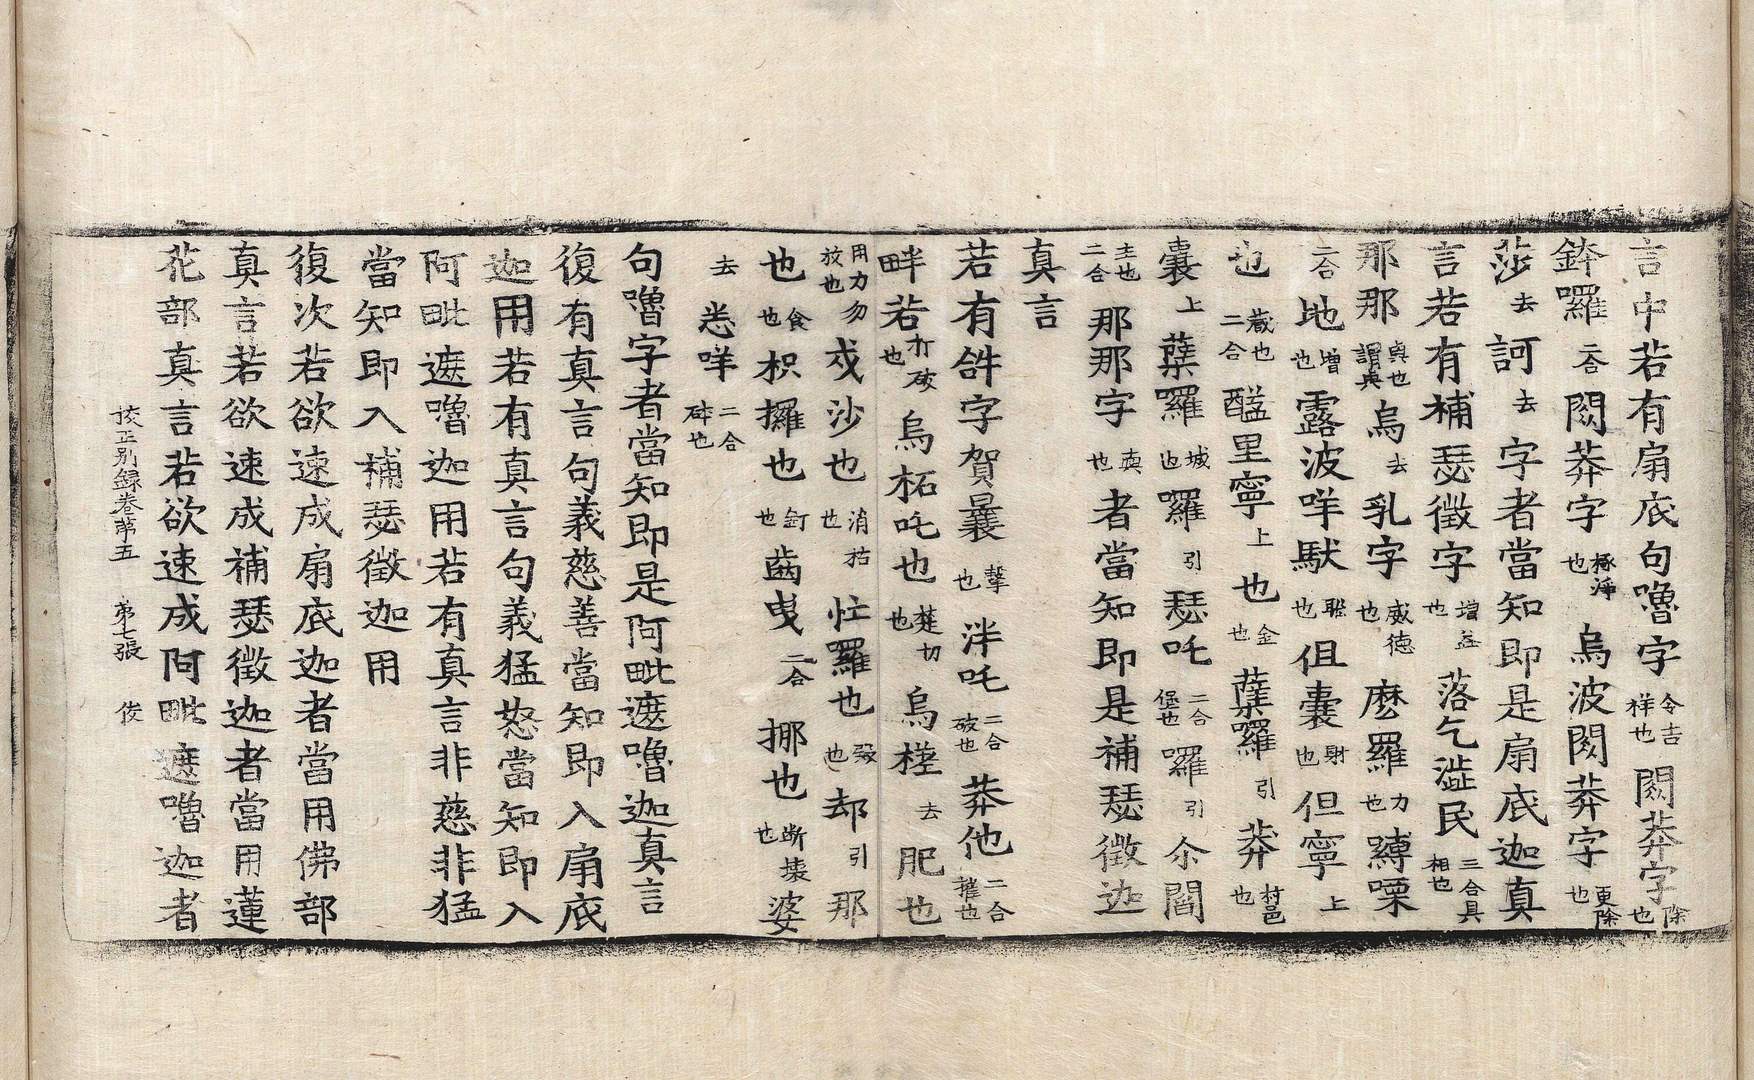 言中若有扇底句嚕字令吉祥也閼莽字除也
鉢囉二合閼莽字極淨也烏波閼莽字更除也
莎去訶去字者當知即是扇底迦真
言若有補瑟徵字增益也落乞澁民三合具相也
那那與也謂與烏去乳字威德也麽羅力也縳㗚
二合地增也露波咩馱聡也伹囊財也但寧上
也藏也二合醯里寧上也金也蘖囉引莽村邑也
囊上蘖囉城也囉引瑟吒二合堡也囉引尒閻
主也二合那那字與也者當知即是補瑟徵迦
真言
若有㖃字賀曩擊也泮吒二合破也莽他二合摧也
畔若打破也烏柘吒也楚切也烏槎去肥也
用力勿放也戍沙也消枯也忙羅也殺也却引那
也食也枳攞也釘也齒曳二合挪也斷壞也婆
去悉咩二合碎也
句嚕字者當知即是阿毗遮嚕迦真言
復有真言句義慈善當知即入扇底
迦用若有真言句義猛怒當知即入
阿毗遮嚕迦用若有真言非慈非猛
當知即入補瑟徵迦用
復次若欲速成扇底迦者當用佛部
真言若欲速成補瑟徵迦者當用蓮
花部真言若欲速成阿毗遮嚕迦者
校正別録卷第五　第七張　俊